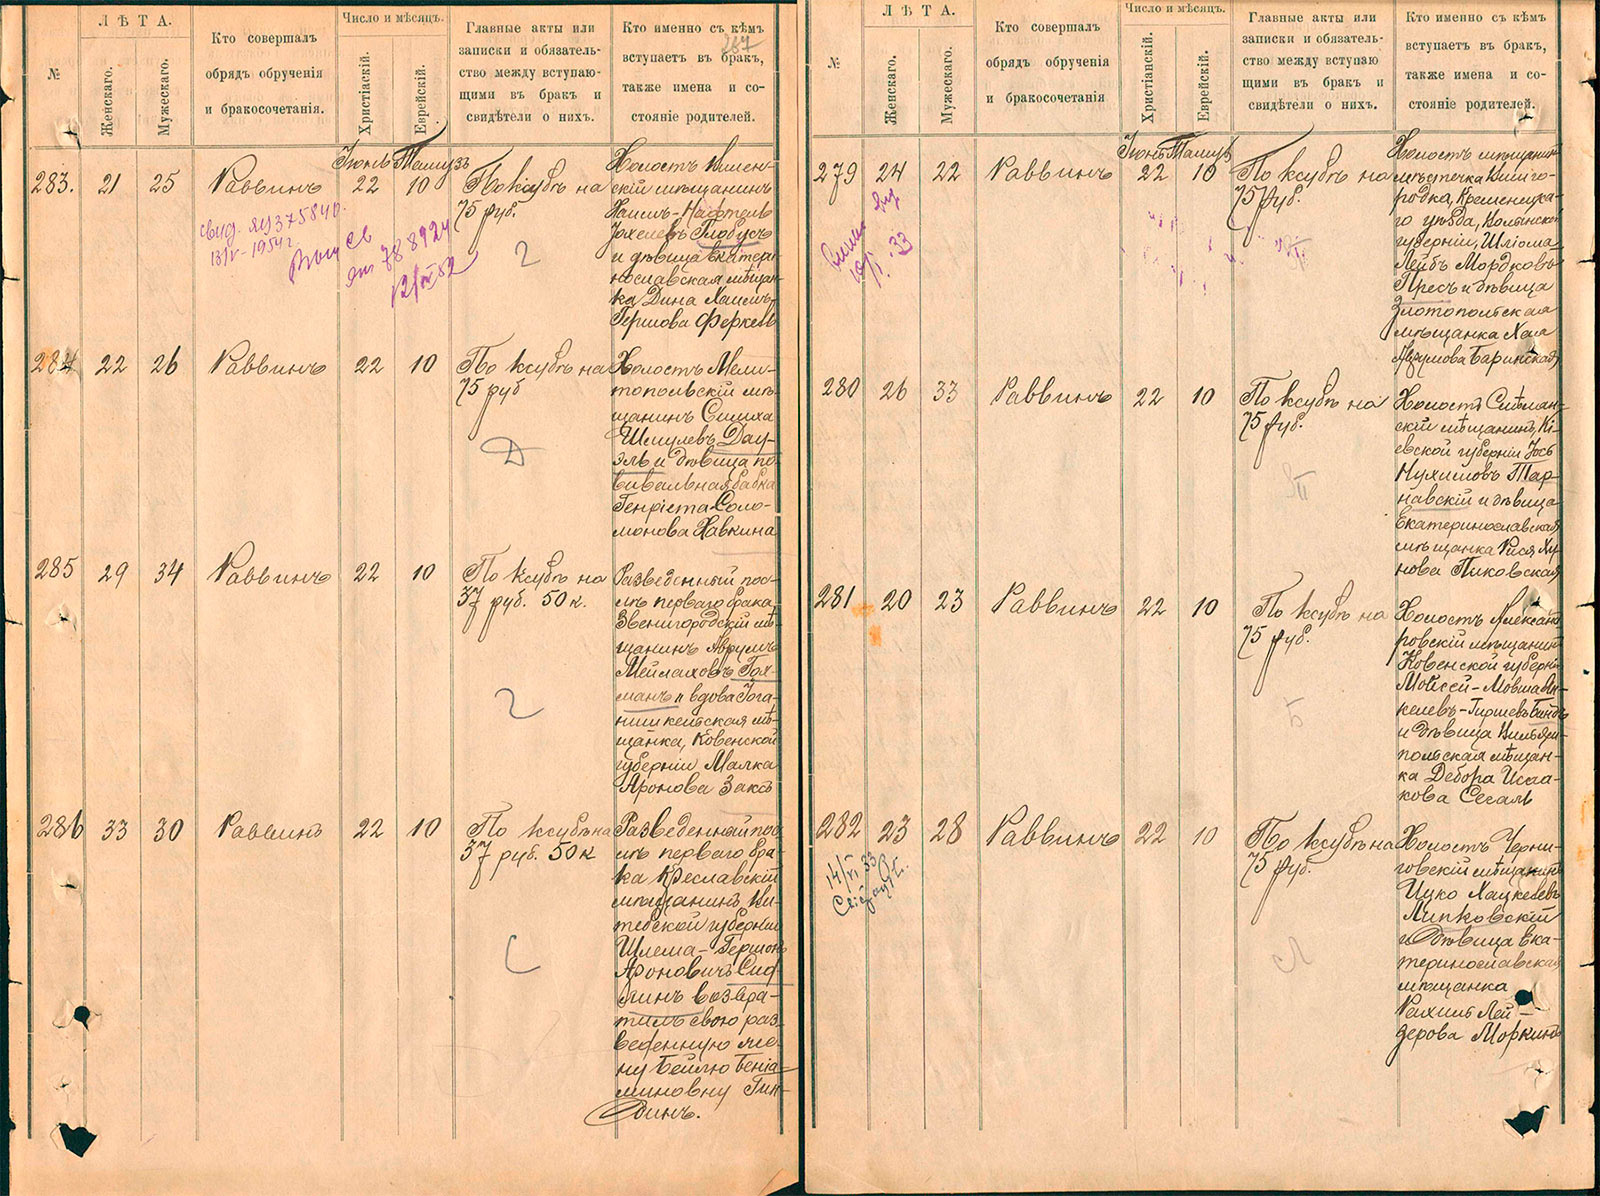 №
Л Ѣ Т А.
Женскаго.
Мужескаго.
Кто совершалъ
обрядъ обрученія
и бракосочетанія.
Число и мѣсяцъ.
Христіанскій.
Еврейскій.
Главные акты или
записки и обязатель-
ство между вступаю-
щими въ бракъ и
свидѣтели о нихъ.
Кто именно съ кѣмъ
вступаетъ въ бракъ,
также имена и со-
стояніе родителей.
287
Іюнь Тамузъ
283. 21 25 Раввинъ 22 10
По ксубѣ на
75 руб.
Холостъ
скій мѣщанинъ
Хаимъ-Нафтель
Іохелевъ Глобусъ
и дѣвица Екатери
нославская мѣщан
ка Дина Хаимъ-
Гершова
свид. ЯЦ 375840.
13/V-1954 г.
2
284 22 26 Раввинъ 22 10
По ксубѣ на
75 руб
Холостъ Мели-
топольскій мѣ-
щанинъ Симха
Шмулевъ Дау-
эль и дѣвица по-
вивальная бабка
Генріета Соло-
монова Хавкина
Д
285 29 34 Раввинъ 22 10
По ксубѣ на
37 руб. 50 к.
Разведенный пос-
лѣ перваго брака
Звенигородскій мѣ-
щанинъ Аврумъ
Мейлаховъ Гох-
манъ и вдова
мѣ-
щанка, Ковенской
губерніи Малка
Аронова Заксъ
2
286 33 30 Раввинъ 22 10
По ксубѣ на
37 руб. 50 к
Разведенный пос
лѣ перваго бра-
ка Креславскій
мѣщанинъ Ви-
тебской губерніи
Шлема-Гершонъ
Ароновичъ
возвра-
тилъ свою раз-
веденную же-
ну Бейлю Беніа-
миновну Гин-
динъ.
С
№
Л Ѣ Т А.
Женскаго.
Мужескаго.
Кто совершалъ
обрядъ обрученія
и бракосочетанія
Число и мѣсяцъ.
Христіанскій.
Еврейскій.
Главные акты или
записки и обязатель-
ство между вступаю
щими въ бракъ и
свидѣтели о нихъ.
Кто именно съ кѣмъ
вступаетъ въ бракъ,
также имена и со-
стояніе родителей.
Іюнь Тамузъ
279 24 22 Раввинъ 22 10
По ксубѣ на
75 руб.
Холостъ мѣщанинъ
мѣстечка Вишго-
родка, Кременецка-
го уѣзда, Волынской
губерніи, Шліома
Лейбъ Мордковъ
Пресъ и дѣвица
Златопольская
мѣщанка Хая
Аврумова Баринская
280 26 33 Раввинъ 22 10
По ксубѣ на
75 руб.
Холостъ Смѣлян-
скій мѣщанинъ, Кі-
евской губерніи Іось
Нухимовъ Тар-
навскій и дѣвица
Екатеринославская
мѣщанка Рися Ху
нова Пиковская
281 20 23 Раввинъ 22 10
По ксубѣ на
75 руб.
Холостъ Александ
ровскій мѣщанинъ
Ковенской губерніи
Мовсей-Мовша Ян-
келевъ-Гиршевъ
и дѣвица
польская мѣщан-
ка Дебора Исаа-
кова Сегаль
Б
282 23 28 Раввинъ 22 10
По ксубѣ на
75 руб.
Холостъ Черни-
говскій мѣщанинъ
Ицко Хацкелевъ
Липковскій
и дѣвица Ека-
теринославская
мѣщанка
Рахиль Лей-
зерова Моркинъ
Л